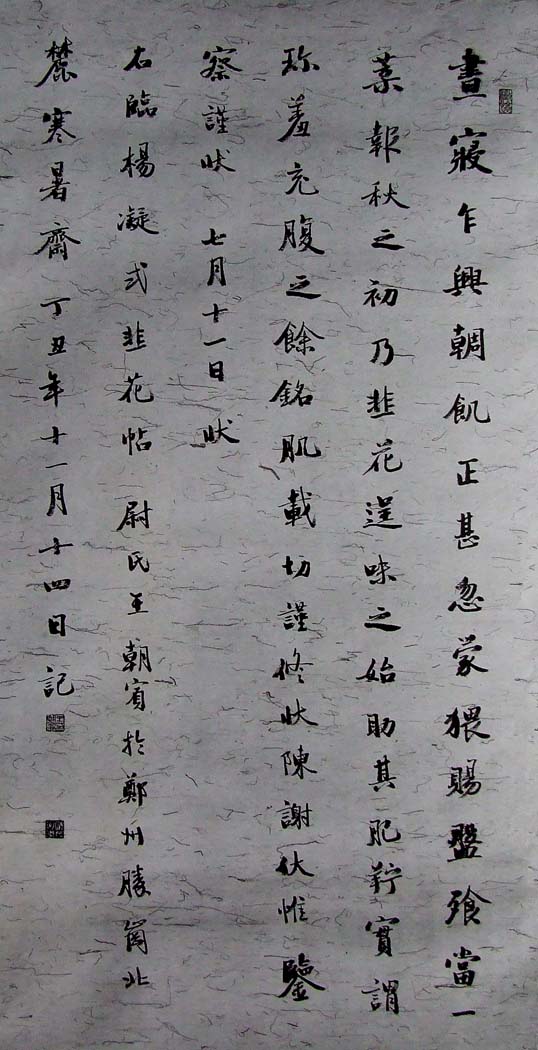 晝寢乍興輖飢正甚忽蒙猥賜盤飱當一
葉報秋之初乃韭花逞味之始助其肥羜實謂
珍羞充腹之餘銘肌載切謹修狀陳謝伏惟鑒
察謹狀 七月十一日 狀
右臨楊凝式韭花帖 尉氏王朝賓於鄭州勝崗北
麓寒暑齋 丁丑年十一月十四日記